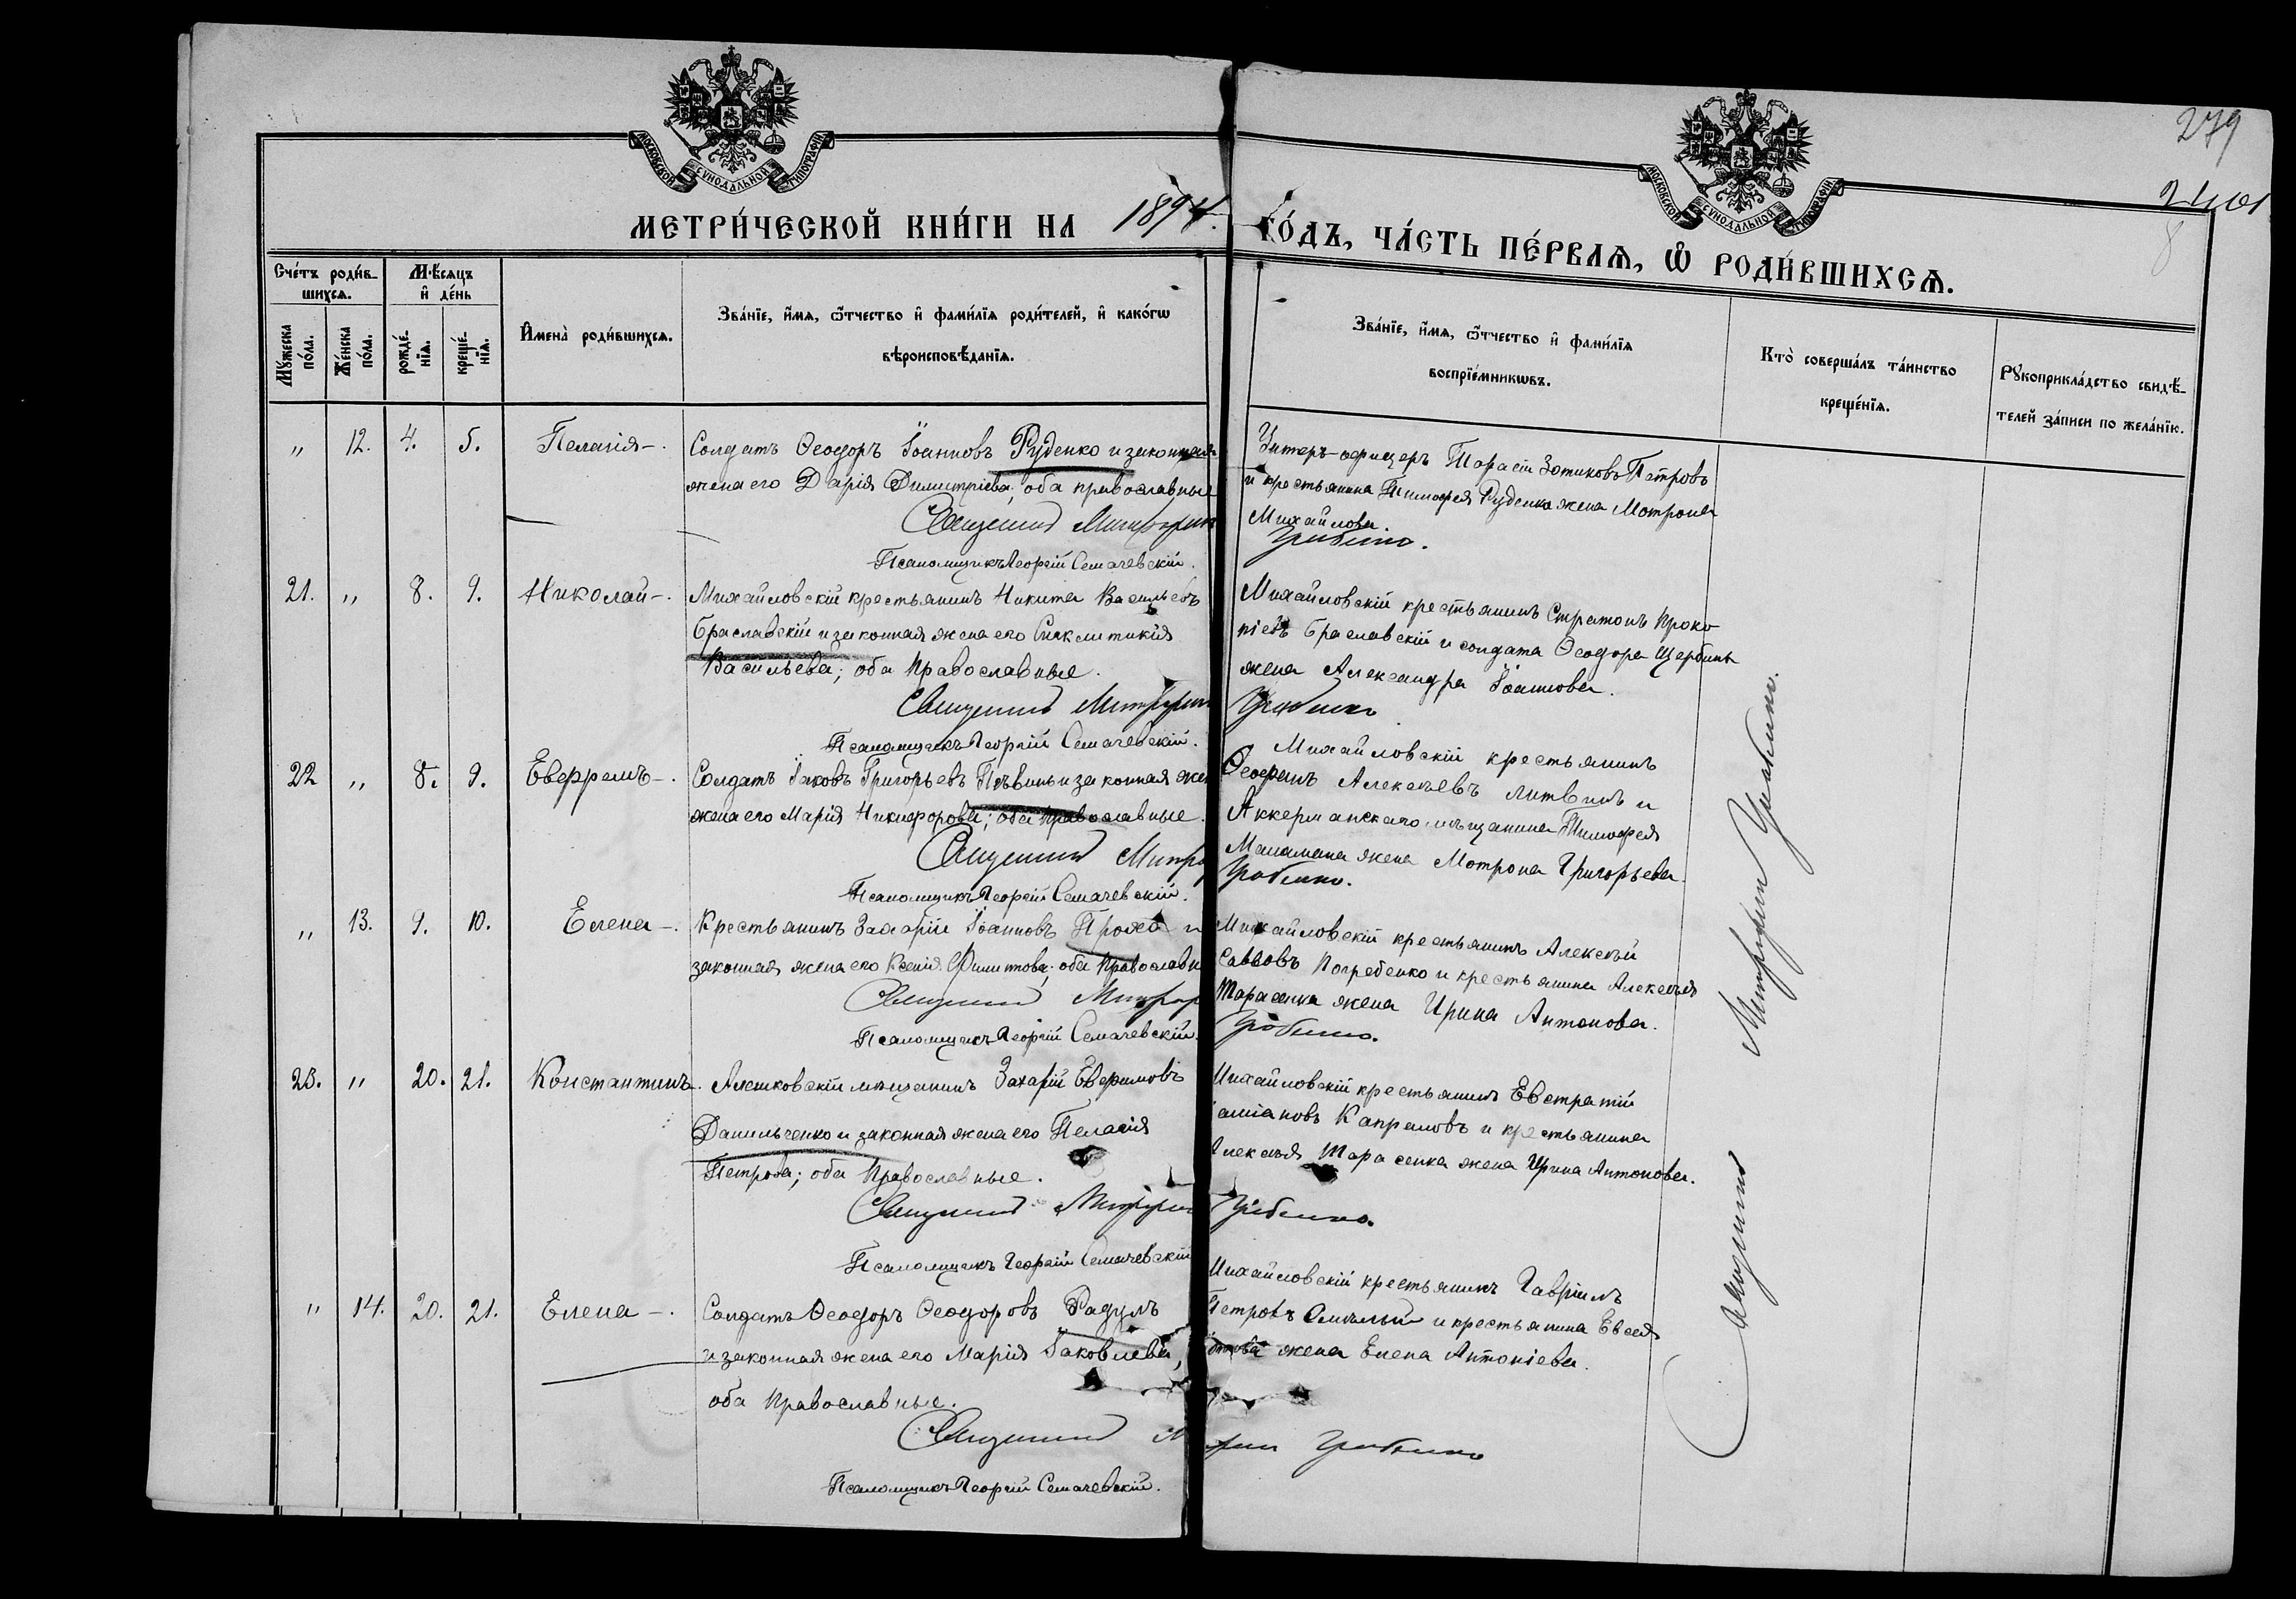 279
2401
8
МОСКОВСКОЙ СУНОДАЛЬНОЙ ТИПОГРАФІИ
МОСКОВСКОЙ СУНОДАЛЬНОЙ ТИПОГРАФІИ
МЕТРИ́ЧЕСКОЙ КНИ́ГИ НА 1894. ГО́ДЪ, ЧА́СТЬ ПЕ́РВАѦ, Ѡ РОДИ́ВШИХСѦ.
Сче́тъ роди́в-
шихсѧ.
Мѣ́сѧцъ
и де́нь
Мꙋжеска
по́ла.
Же́нска
по́ла.
рожде́-
нїѧ.
креще́-
нїѧ.
Имена̀ роди́вшихсѧ.
Зва́нїе, и́мѧ, ѻ҆́тчество и фами́лїѧ роди́телей, и како́гѡ
вѣроисповѣ́данїѧ.
Зва́нїе, и́мѧ, ѻ҆́тчество и фами́лїѧ
воспрїе́мникѡвъ.
Кто̀ соверша́лъ та́инство
креще́нїѧ.
Рꙋкоприкла́дство свидѣ́-
телей за́писи по жела́нїю.
„ 12. 4. 5. Пелагія -.
Солдатъ Ѳеодоръ Іоанновъ Руденко и законная
жена его Дарія Димитріева; оба православные
Священникъ Митрофанъ
Псаломщикъ Георгій Семачевскій.
Унтеръ-офицеръ Тарасій Зотиковъ Петровъ
и крестьянина Тимофея Руденка жена Мотрона
Михайлова.
21. „ 8. 9. Николай -.
Михайловскій крестьянинъ Никита Васильевъ
Браславскій и законная жена его Синклитикія
Васильева; оба Православные.
Священникъ Митрофанъ
Псаломщикъ Георгій Семачевскій.
Михайловскій крестьянинъ Стратонъ Проко
піевъ Браславскій и солдата Ѳеодора Щербины
жена Александра Іоаннова.
22 „ 8. 9. Евфремъ -.
Солдатъ Іаковъ Григорьевъ и законная жен
жена его Марія Никифорова; оба православные.
Священникъ Митро
Псаломщикъ Георгій Семачевскій.
Михайловскій крестьянинъ
Ѳеофанъ Алексѣевъ Литвинъ и
Аккерманскаго мѣщанина Тимофея
Маламана жена Мотрона Григорьева.
„ 13. 9. 10. Елена -.
Крестьянинъ Захарій Іоанновъ и
законная жена его Ксенія Филиппова; оба Православн
Священникъ Митроф
Псаломщикъ Георгій Семачевскій.
Михайловскій крестьянинъ Алексѣй
Саввовъ Погребенко и крестьянина Алексѣя
Тарасенка жена Ирина Антонова.
23. „ 20. 21. Константинъ.
Алешковскій мѣщанинъ Захарій Евфимовъ
Данильченко и законная жена его Пелагія
Петрова; оба Православные.
Священникъ Митрофан
Псаломщикъ Георгій Семачевскій
Михайловскій крестьянинъ Евстратій
Капраловъ и крестьянина
Алексѣя Тарасенка жена Ирина Антонова.
„ 14. 20. 21. Елена -.
Солдатъ Ѳеодоръ Ѳеодоровъ Радулъ
и законная жена его Марія Іаковлева,
оба Православные.
Священникъ
Псаломщикъ Георгій Семачевскій.
Михайловскій крестьянинъ Гавріилъ
Петровъ и крестьянина Евсея
жена Елена Антоніева.
Священникъ Митрофанъ